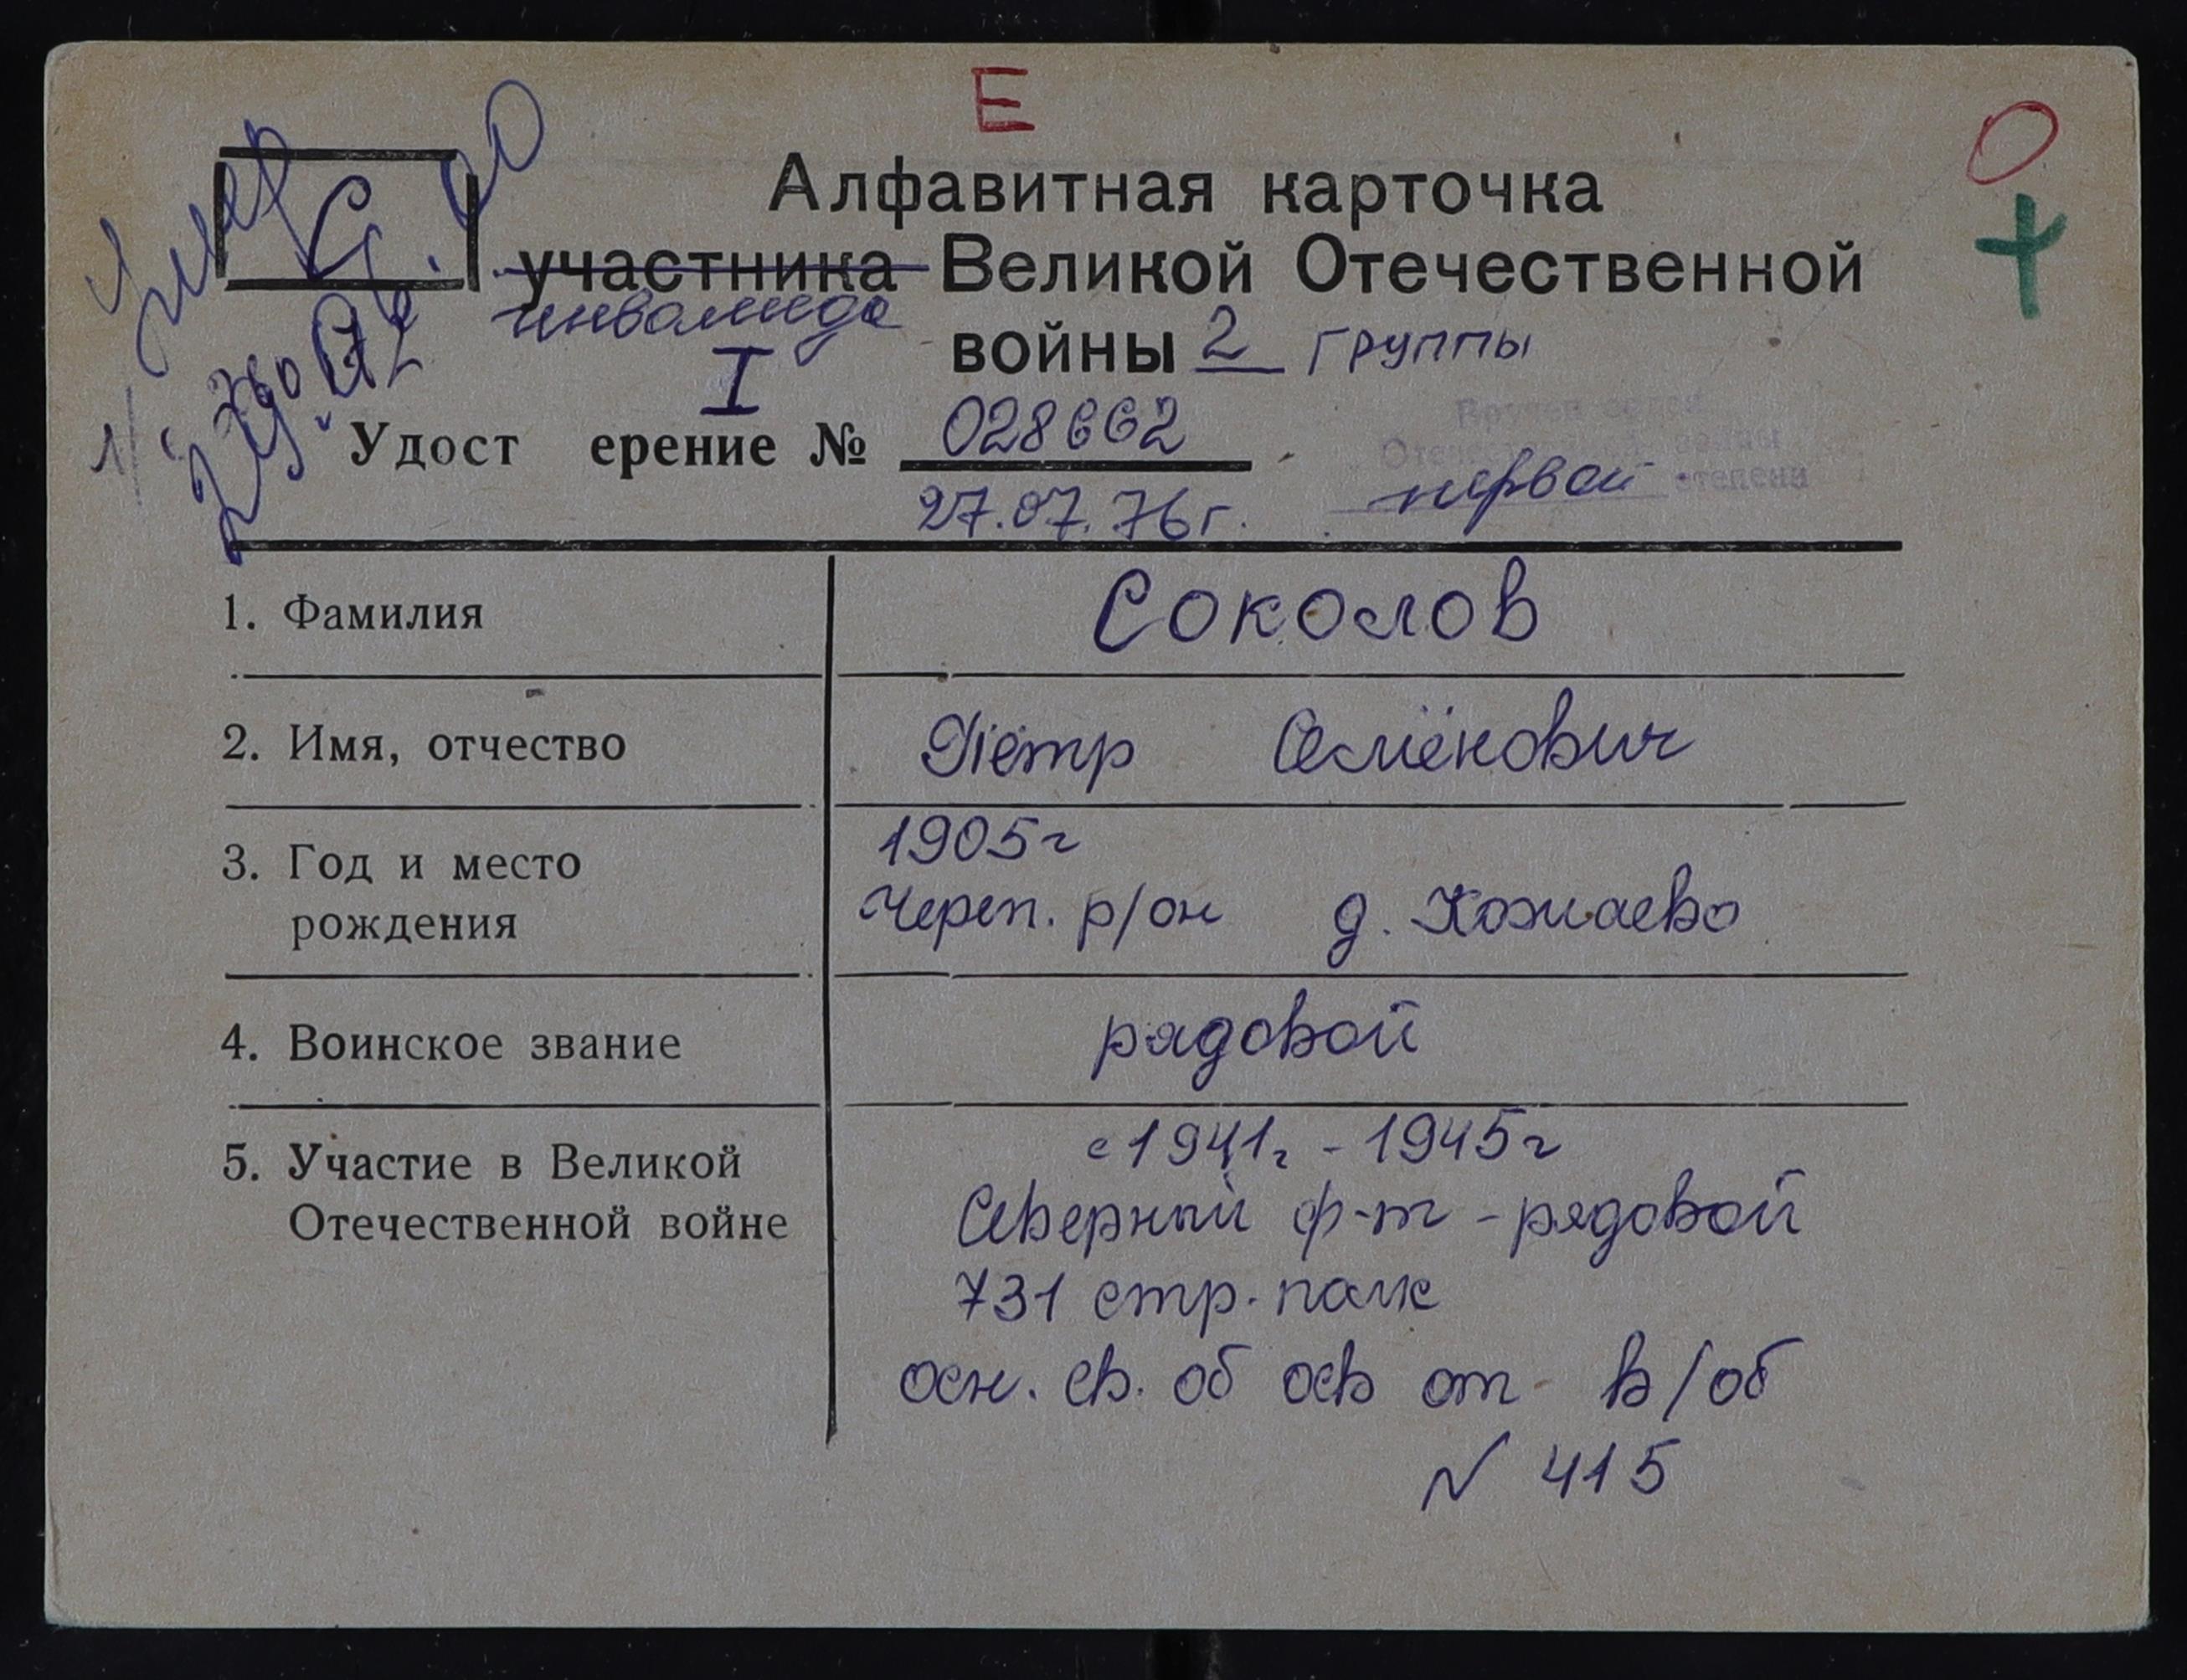 Е
О
Умер
С
Алфавитная карточка
участника Великой Отечественной
инвалида
войны 2 группы
I
Удост ерение № 028662
Вручен орден
Отечественной войны
первой степени
27.07.76г.
1. Фамилия Соколов
2. Имя, отчество Пётр Семёнович
3. Год и место рождения
1905г
Череп. р/он д. Кожаево
4. Воинское звание рядовой
5. Участие в Великой Отечественной войне
с 1941г - 1945г
Северный ф-т - рядовой
731 стр. полк
осн. св. об осв от в/об
N 415